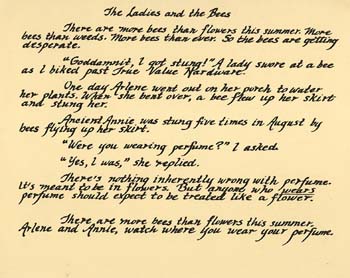 The Ladies and the Bees
There are more bees than flowers this summer. More
bees than weeds. More bees than ever. So the bees are getting
desperate.
"Goddamnit, I got stung!" A lady swore at a bee
as I biked past True Value Hardware.
One day Arlene went out on her porch to water
her plants. When she bent over, a bee flew up her skirt
and stung her.
Ancient Annie was stung five times in August by
bees flying up her skirt.
"Were you wearing perfume?" I asked.
"Yes, I was," she replied.
There's nothing inherently wrong with perfume.
It's meant to be in flowers. But anyone who wears
perfume should expect to be treated like a flower.
There are more bees than flowers this summer.
Arlene and Annie, watch where you wear your perfume.